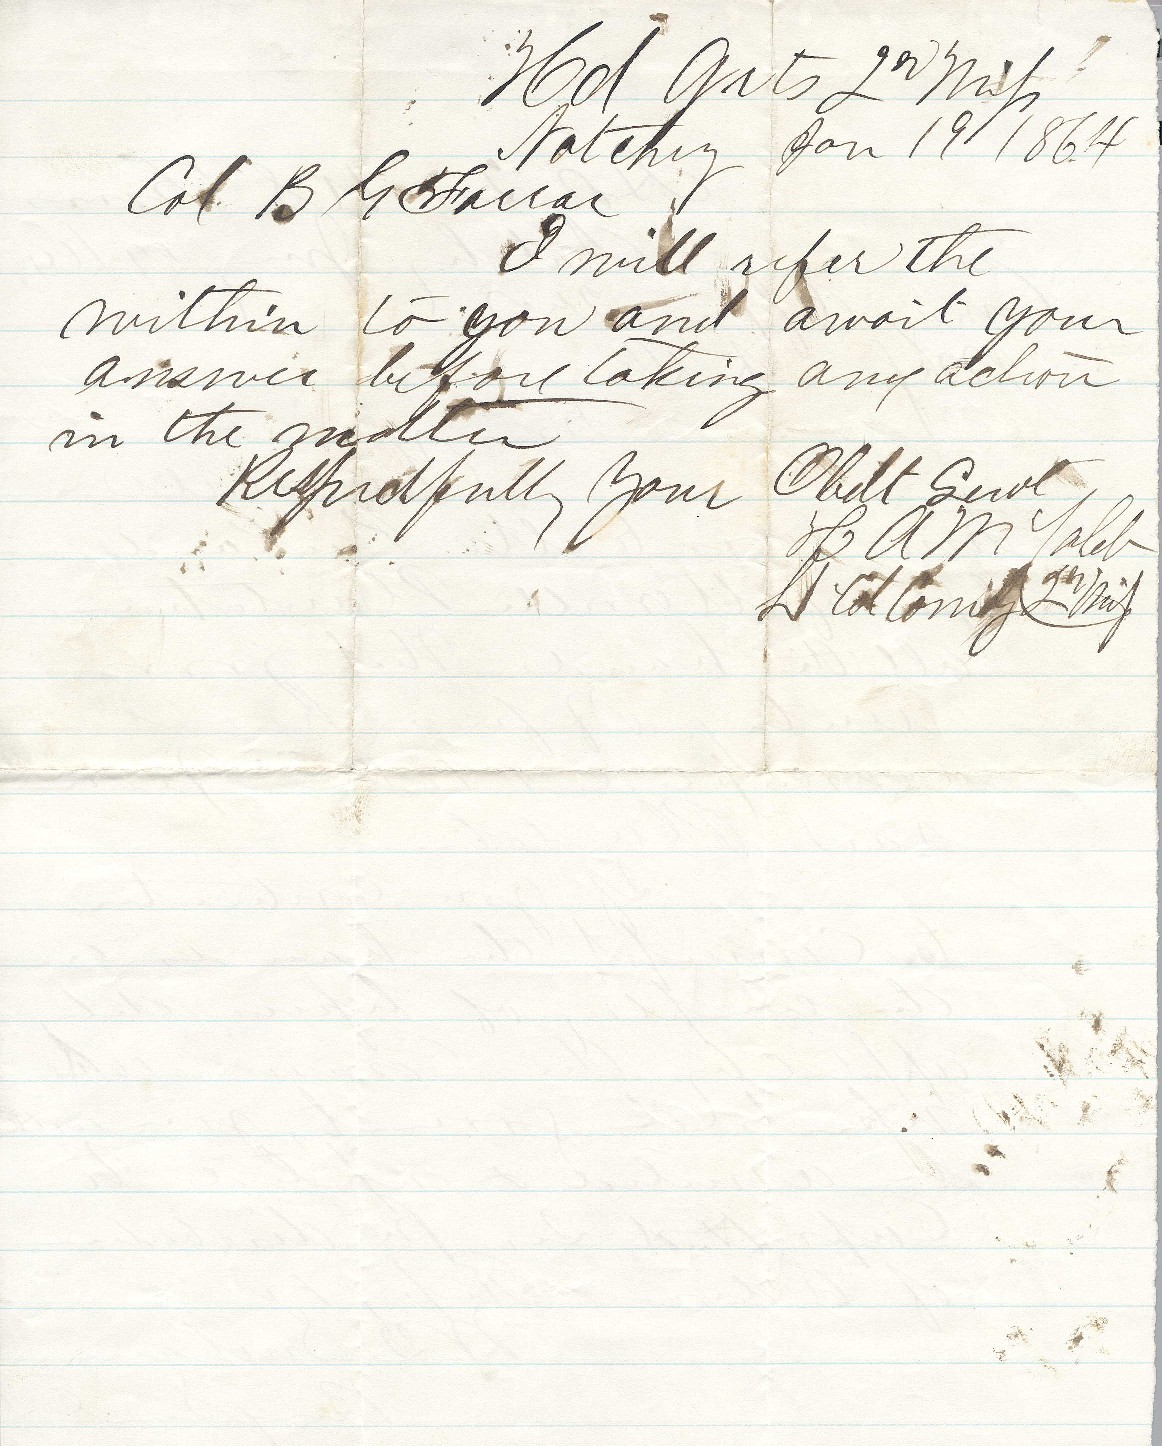 Hd Qrts 2nd Miss
Natchez Jan 19 1864
Col B G Farrar
I will refer the
within to you and await your
answer before taking any action
in the matter
Respectfully Your Obdt Servt
H A McCaleb
Lt Col Comdg 2nd Miss